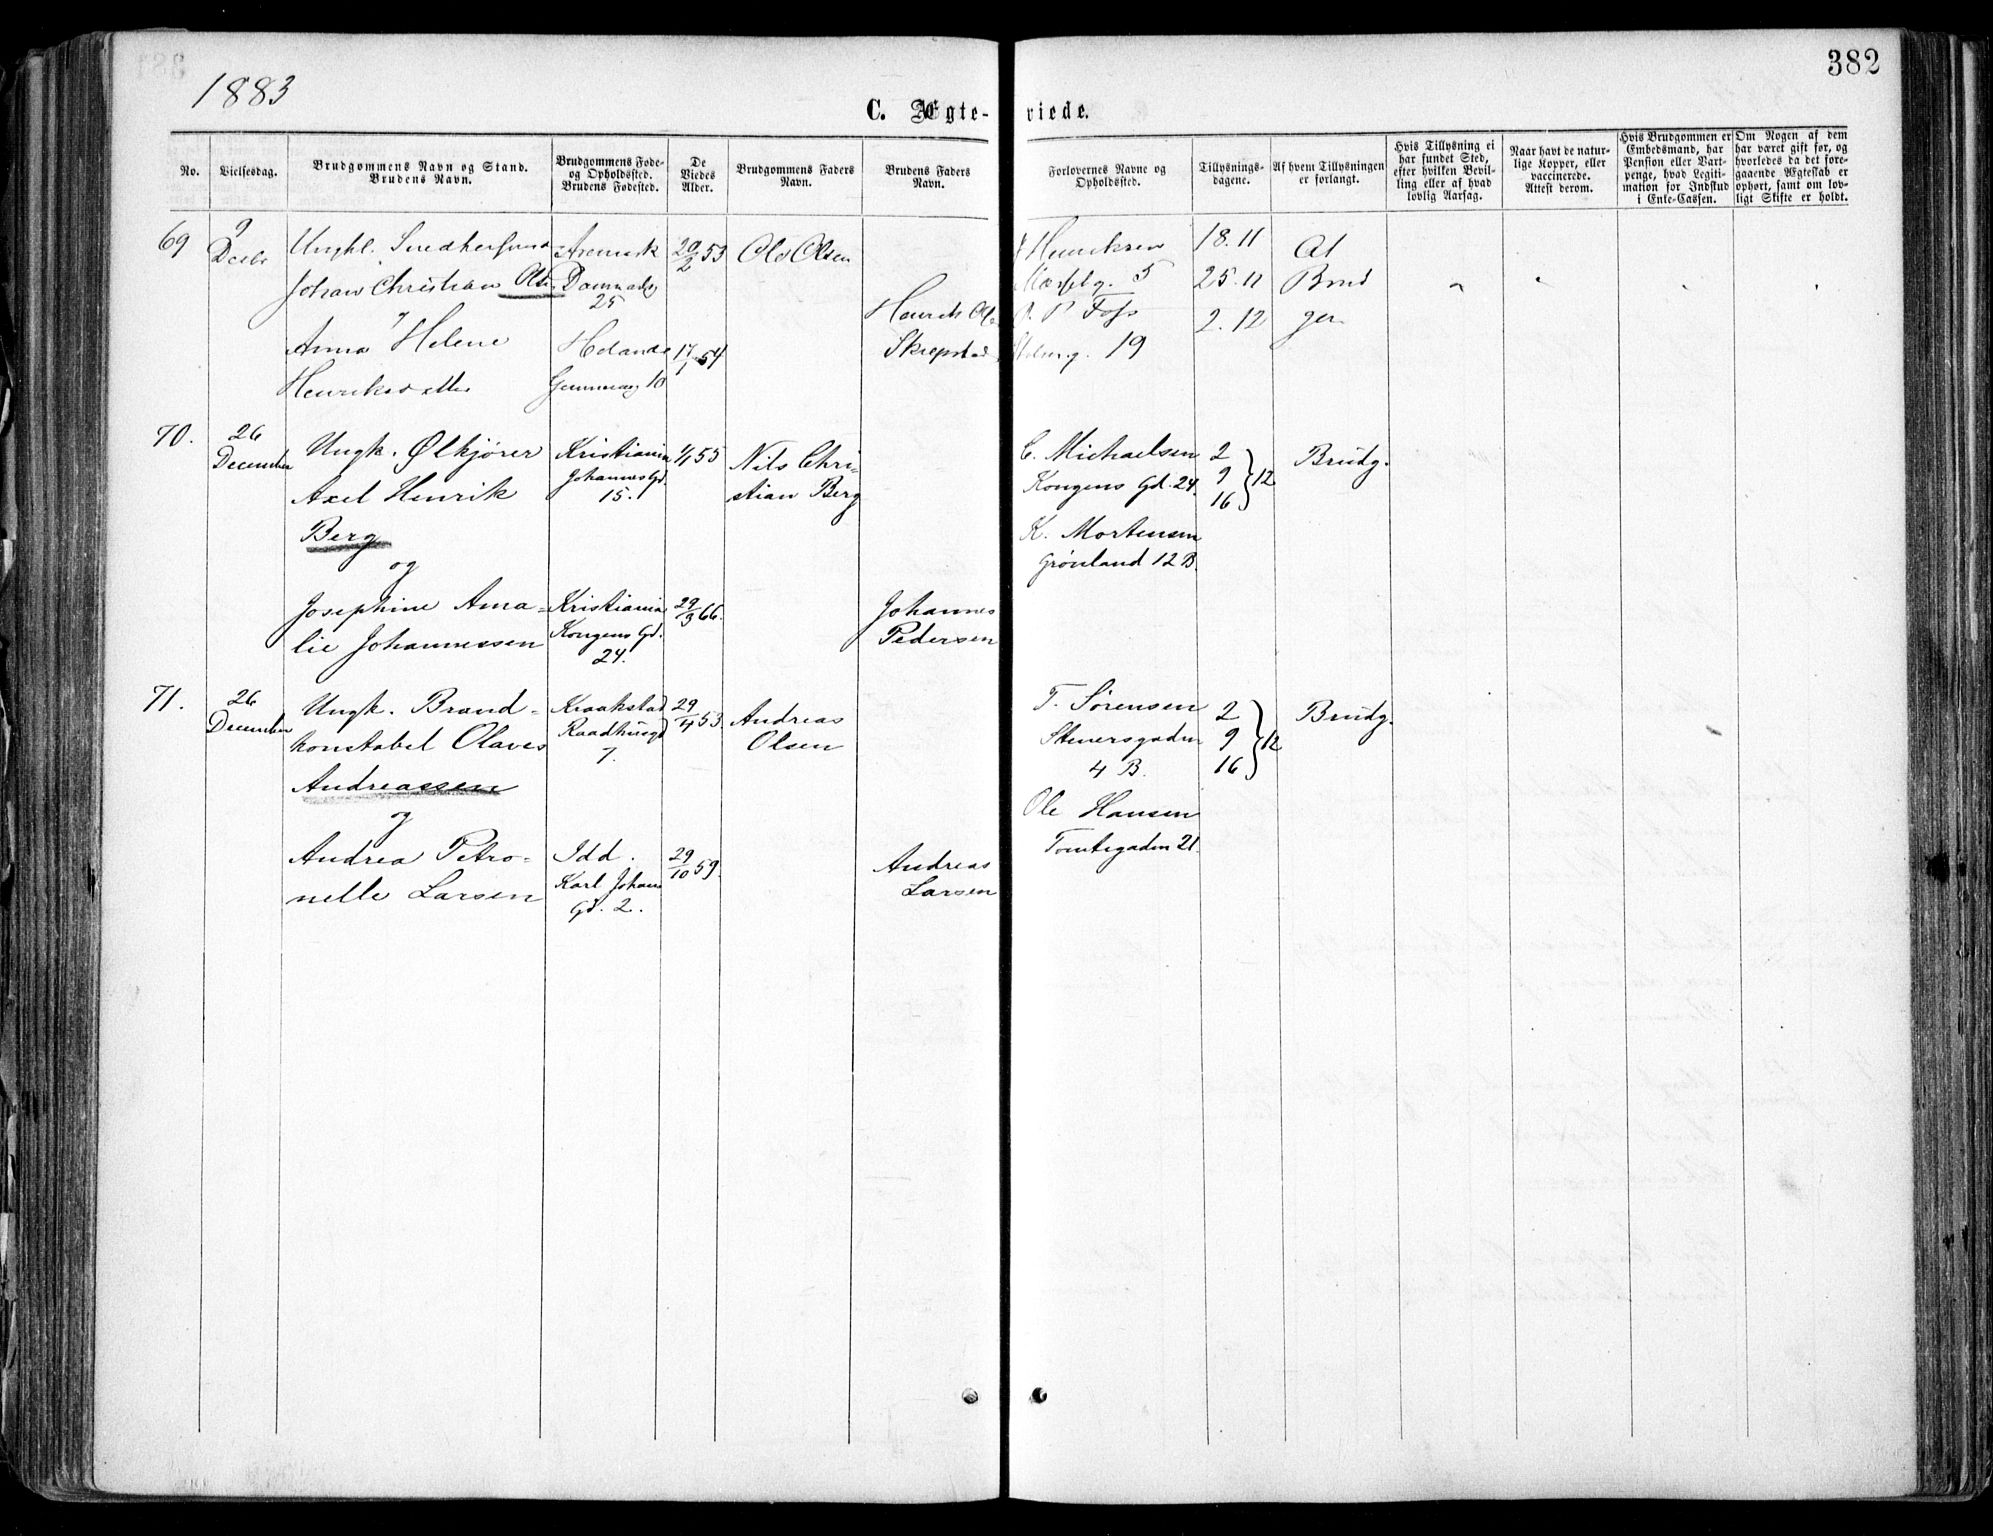 1883
382
C. Ægte-viede.
No.
Vielsesdag.
Brudgommens Navn og Stand.
Brudens Navn.
Brudgommens Føde-
og Opholdssted.
Brudens Fødested.
De
Viedes
Alder.
Brudgommens Faders
Navn.
Brudens Faders
Navn.
Forlovernes Navne og
Opholdssted.
Tillysnings-
dagene.
Af hvem Tillysningen
er forlangt.
Hvis Tillysning ei
har fundet Sted,
efter hvilken Bevil-
ling eller af hvad
lovlig Aarsag.
Naar havt de natur-
lige Kopper, eller
vaccinerede.
Attest derom.
Hvis Brudgommen er
Embedsmand, har
Pension eller Vart-
penge, hvad Legiti-
mation for Indskud
i Enke-Cassen.
Om Nogen af dem
har været gift før, og
hvorledes da det fore-
gaaende Ægteskab er
ophørt, samt om lov-
ligt Skifte er holdt.
69
9
Decbr
Ungkl.
Johan Christian Olsen
Anna Helene
Aremark
25
10
20/2 53
17/1 54
Ole Olsen
Henrik
Henriksen
5
P. Foss
19
18. 11
25. 11
2. 12
At
Brud
ger
70.
26
December
Ungk. Ølkjører
Axel Henrik
Berg
og
Josephine Ama-
lie Johannessen
Kristiania
Johannes Gd.
15.
Kristiania
Kongens Gd.
24.
1/1 55
29/3 66.
Nils Chri-
stian Berg
Johannes
Pedersen
C. Michaelsen
Kongens Gd. 24.
K. Mortensen
Grønland 12 B.
2
9 } 12
16
Brudg.
71.
26
December
Ungk. Brand-
konstabel Olaves
Andreassen
og
Andrea Petro-
nelle Larsen
Kraakstad
Raadhusgd
7.
Idd.
Karl Johans
Gd. 2.
29/4 53.
29/10 59.
Andreas
Olsen
Andreas
Larsen
T. Sørensen
Stenersgaden
4 B.
Ole Hansen
Tomtegaden 21.
2
9 } 12
16
Brudg.